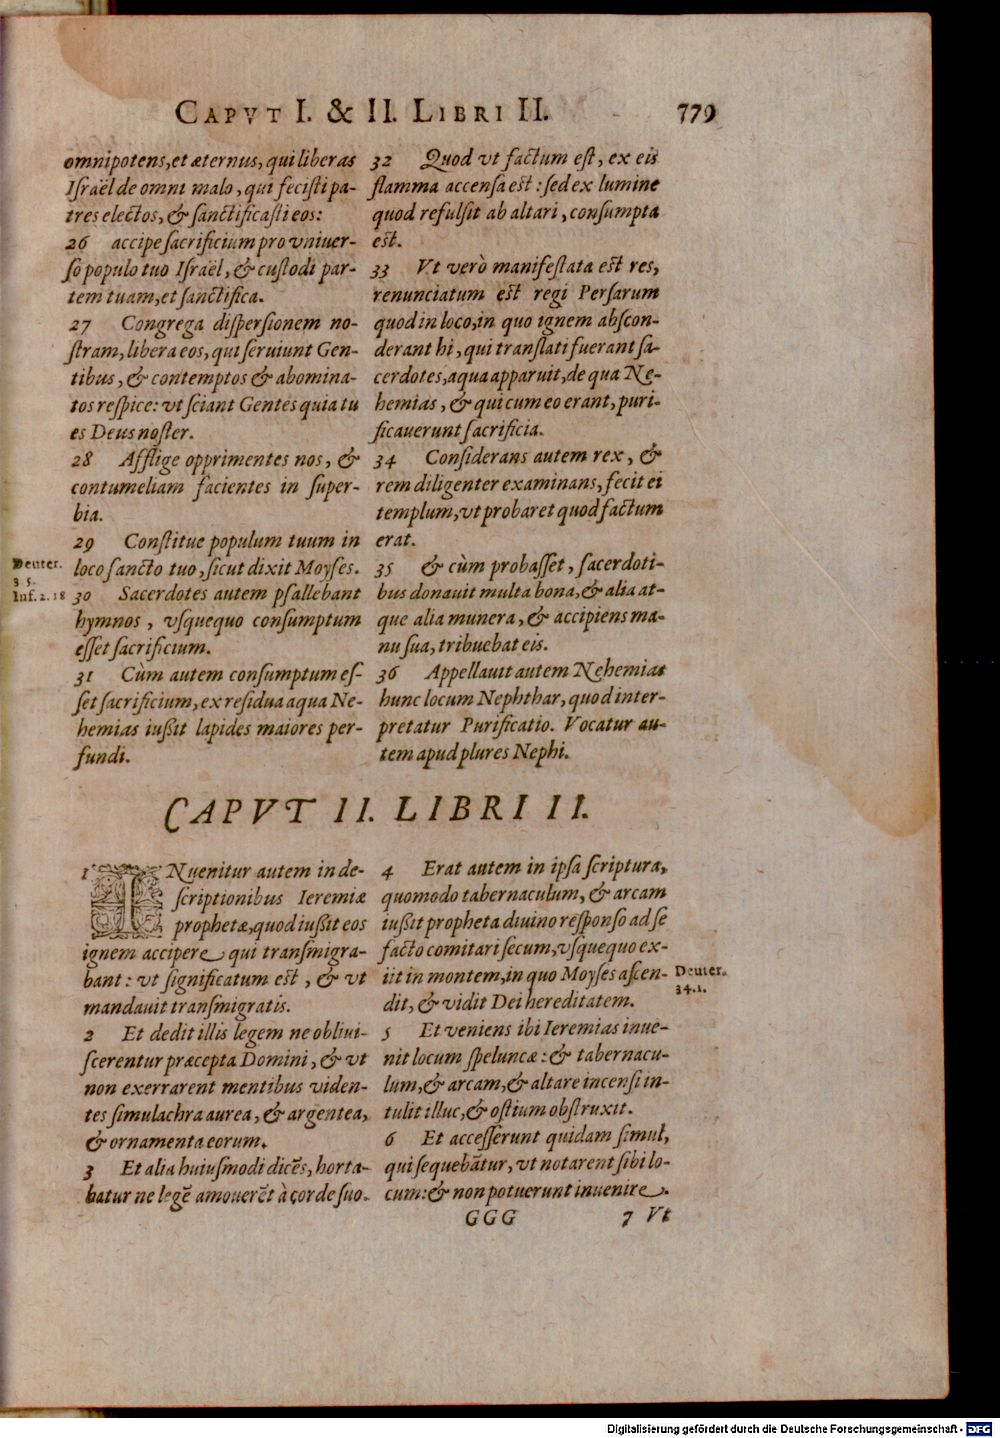 CAPVT I. & II. LIBRI II. 779
omnipotens, et æternus, qui liberas
Israël de omni malo, qui fecisti pa-
tres electos, & sanctificasti eos:
26 accipe sacrificium pro vniuer-
so populo tuo Israël, & custodi par-
tem tuam, et sanctifica.
27 Congrega dispersionem no-
stram, libera eos, qui seruiunt Gen-
tibus, & contemptos & abomina-
tos respice: vt sciant Gentes quia tu
es Deus noster.
28 Afflige opprimentes nos, &
contumeliam facientes in super-
bia.
29 Constitue populum tuum in
Deuter. 3 5.
loco sancto tuo, sicut dixit Moyses.
Inf. 2. 18
30 Sacerdotes autem psallebant
hymnos, vsquequo consumptum
esset sacrificium.
31 Cùm autem consumptum es-
set sacrificium, ex residua aqua Ne-
hemias iußit lapides maiores per-
fundi.
32 Quod vt factum est, ex eis
flamma accensa est: sed ex lumine
quod refulsit ab altari, consumpta
est.
33 Vt verò manifestata est res,
renunciatum est regi Persarum
quod in loco, in quo ignem abscon-
derant hi, qui translati fuerant sa-
cerdotes, aqua apparuit, de qua Ne-
hemias, & qui cum eo erant, puri-
ficauerunt sacrificia.
34 Considerans autem rex, &
rem diligenter examinans, fecit ei
templum, vt probaret quod factum
erat.
35 & cùm probasset, sacerdoti-
bus donauit multa bona, & alia at-
que alia munera, & accipiens ma-
nu sua, tribuebat eis.
36 Appellauit autem Nehemias
hunc locum Nephthar, quod inter-
pretatur Purificatio. Vocatur au-
tem apud plures Nephi.
CAPVT II. LIBRI II.
1 INuenitur autem in de-
scriptionibus Ieremiæ
prophetæ, quod iußit eos
ignem accipere qui transmigra-
bant: vt significatum est, & vt
mandauit transmigratis.
2 Et dedit illis legem ne obliui-
scerentur præcepta Domini, & vt
non exerrarent mentibus viden-
tes simulachra aurea, & argentea,
& ornamenta eorum.
3 Et alia huiusmodi dicẽs, horta-
batur ne legẽ amouerẽt à corde suo.
4 Erat autem in ipsa scriptura,
quomodo tabernaculum, & arcam
iußit propheta diuino responso ad se
facto comitari secum, vsquequo ex-
iit in montem, in quo Moyses ascen-
Deuter. 34.1.
dit, & vidit Dei hereditatem.
5 Et veniens ibi Ieremias inue-
nit locum speluncæ: & tabernacu-
lum, & arcam, & altare incensi in-
tulit illuc, & ostium obstruxit.
6 Et accesserunt quidam simul,
qui sequebãtur, vt notarent sibi lo-
cum: & non potuerunt inuenire.
GGG 7 Vt
Digitalisierung gefördert durch die Deutsche Forschungsgemeinschaft - DFG